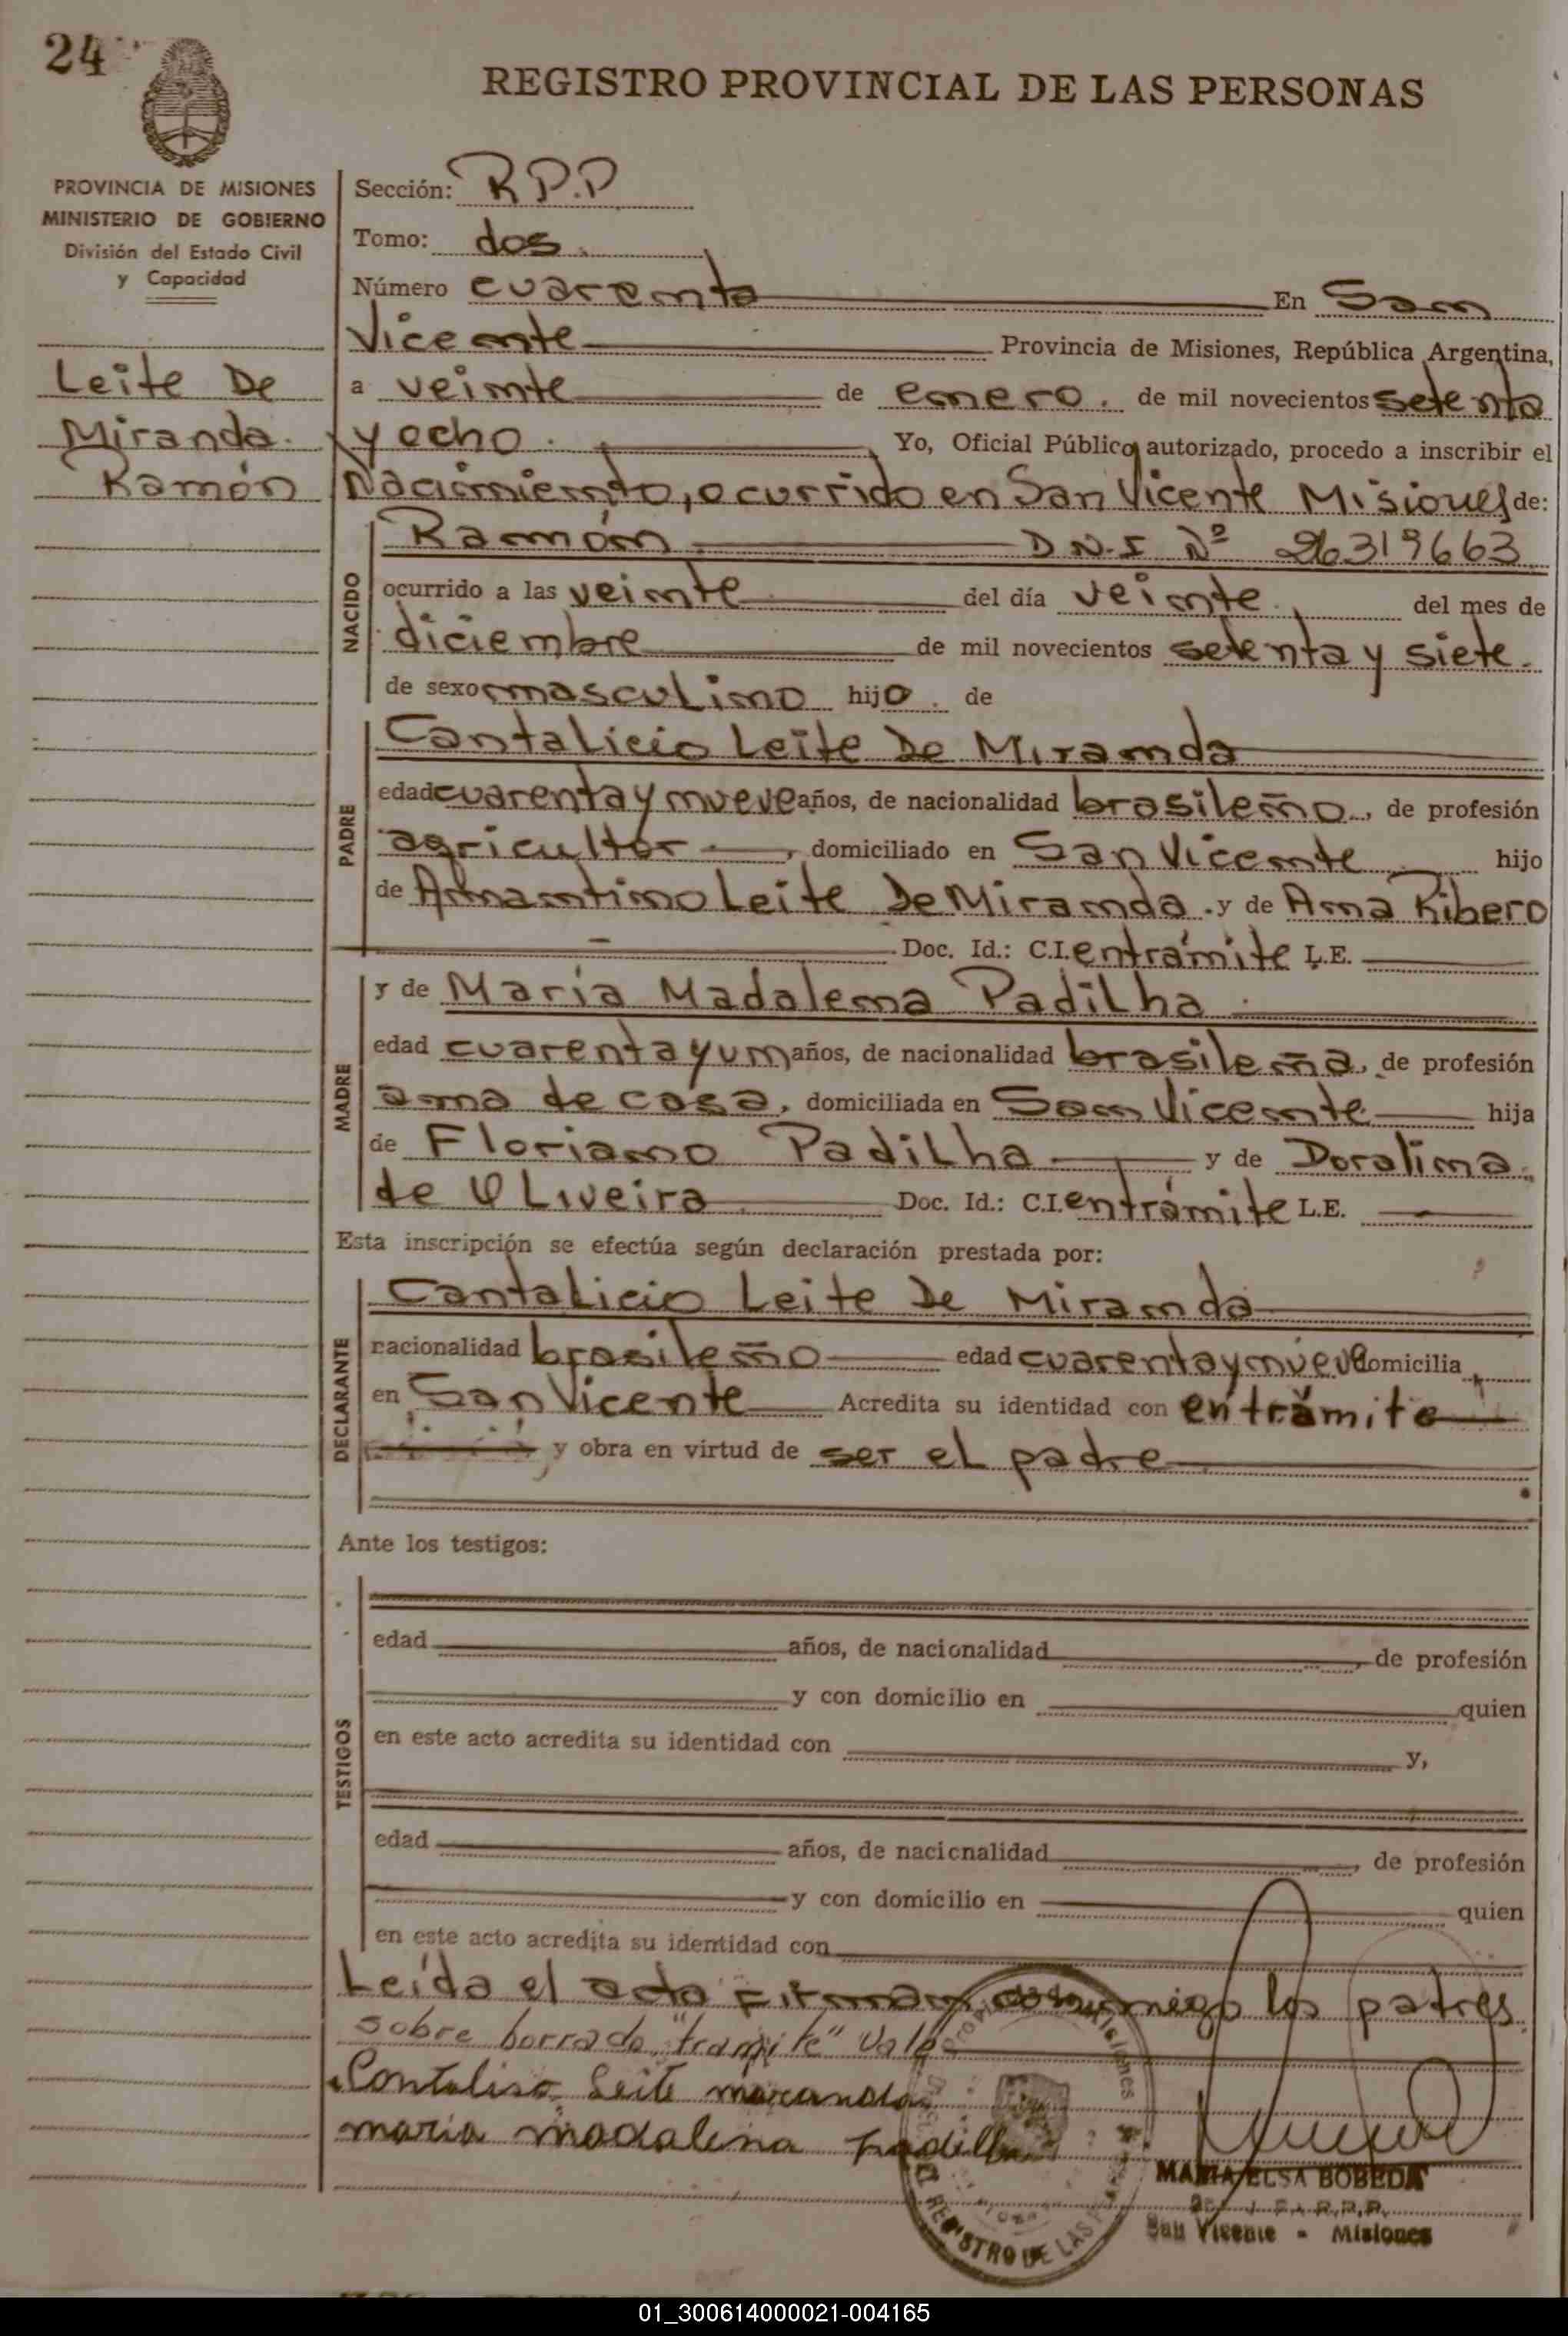 24
REGISTRO PROVINCIAL DE LAS PERSONAS
PROVINCIA DE MISIONES
MINISTERIO DE GOBIERNO
División del Estado Civil
y Capacidad
Leite De
Miranda.
Ramón
Sección: R.P.P
Tomo: dos.
Número cuarenta En San
Vicente Provincia de Misiones, República Argentina,
a veinte de enero. de mil novecientos setenta
y ocho. Yo, Oficial Público autorizado, procedo a inscribir el
Nacimiento, ocurrido en San Vicente Misiones de:
NACIDO
Ramón D.N.I Nº 26319663
ocurrido a las veinte del día veinte. del mes de
diciembre de mil novecientos setenta y siete.
de sexo masculino hijo. de
PADRE
Cantalicio Leite De Miranda
edad cuarenta y nueve años, de nacionalidad brasileño, de profesión
agricultor, domiciliado en San Vicente hijo
de Amantino Leite De Miranda. y de Ana Ribero
Doc. Id.: C.I. entrámite L.E.
MADRE
y de María Madalena Padilha.
edad cuarenta y un años, de nacionalidad brasileña, de profesión
ama de casa, domiciliada en San Vicente hija
de Floriano Padilha y de Doralina
de OLiveira Doc. Id.: C.I. entrámite L.E.
Esta inscripción se efectúa según declaración prestada por:
DECLARANTE
Cantalicio Leite De Miranda
nacionalidad brasileño edad cuarenta y nueve domicilia
en San Vicente Acredita su identidad con entrámite
y obra en virtud de ser el padre
Ante los testigos:
TESTIGOS
edad años, de nacionalidad, de profesión
y con domicilio en quien
en este acto acredita su identidad con y,
edad años, de nacicnalidad, de profesión
y con domicilio en quien
en este acto acredita su identidad con
Leída el acta Firman conmigo los padres.
sobre borrado "tramite" Vale
Contaliso Leite miranda
maria madalena padilha
MARIA ELSA BOBEDA
R.P.P.
San Vicente - Misiones
REGISTRO DE LAS
01_300614000021-004165